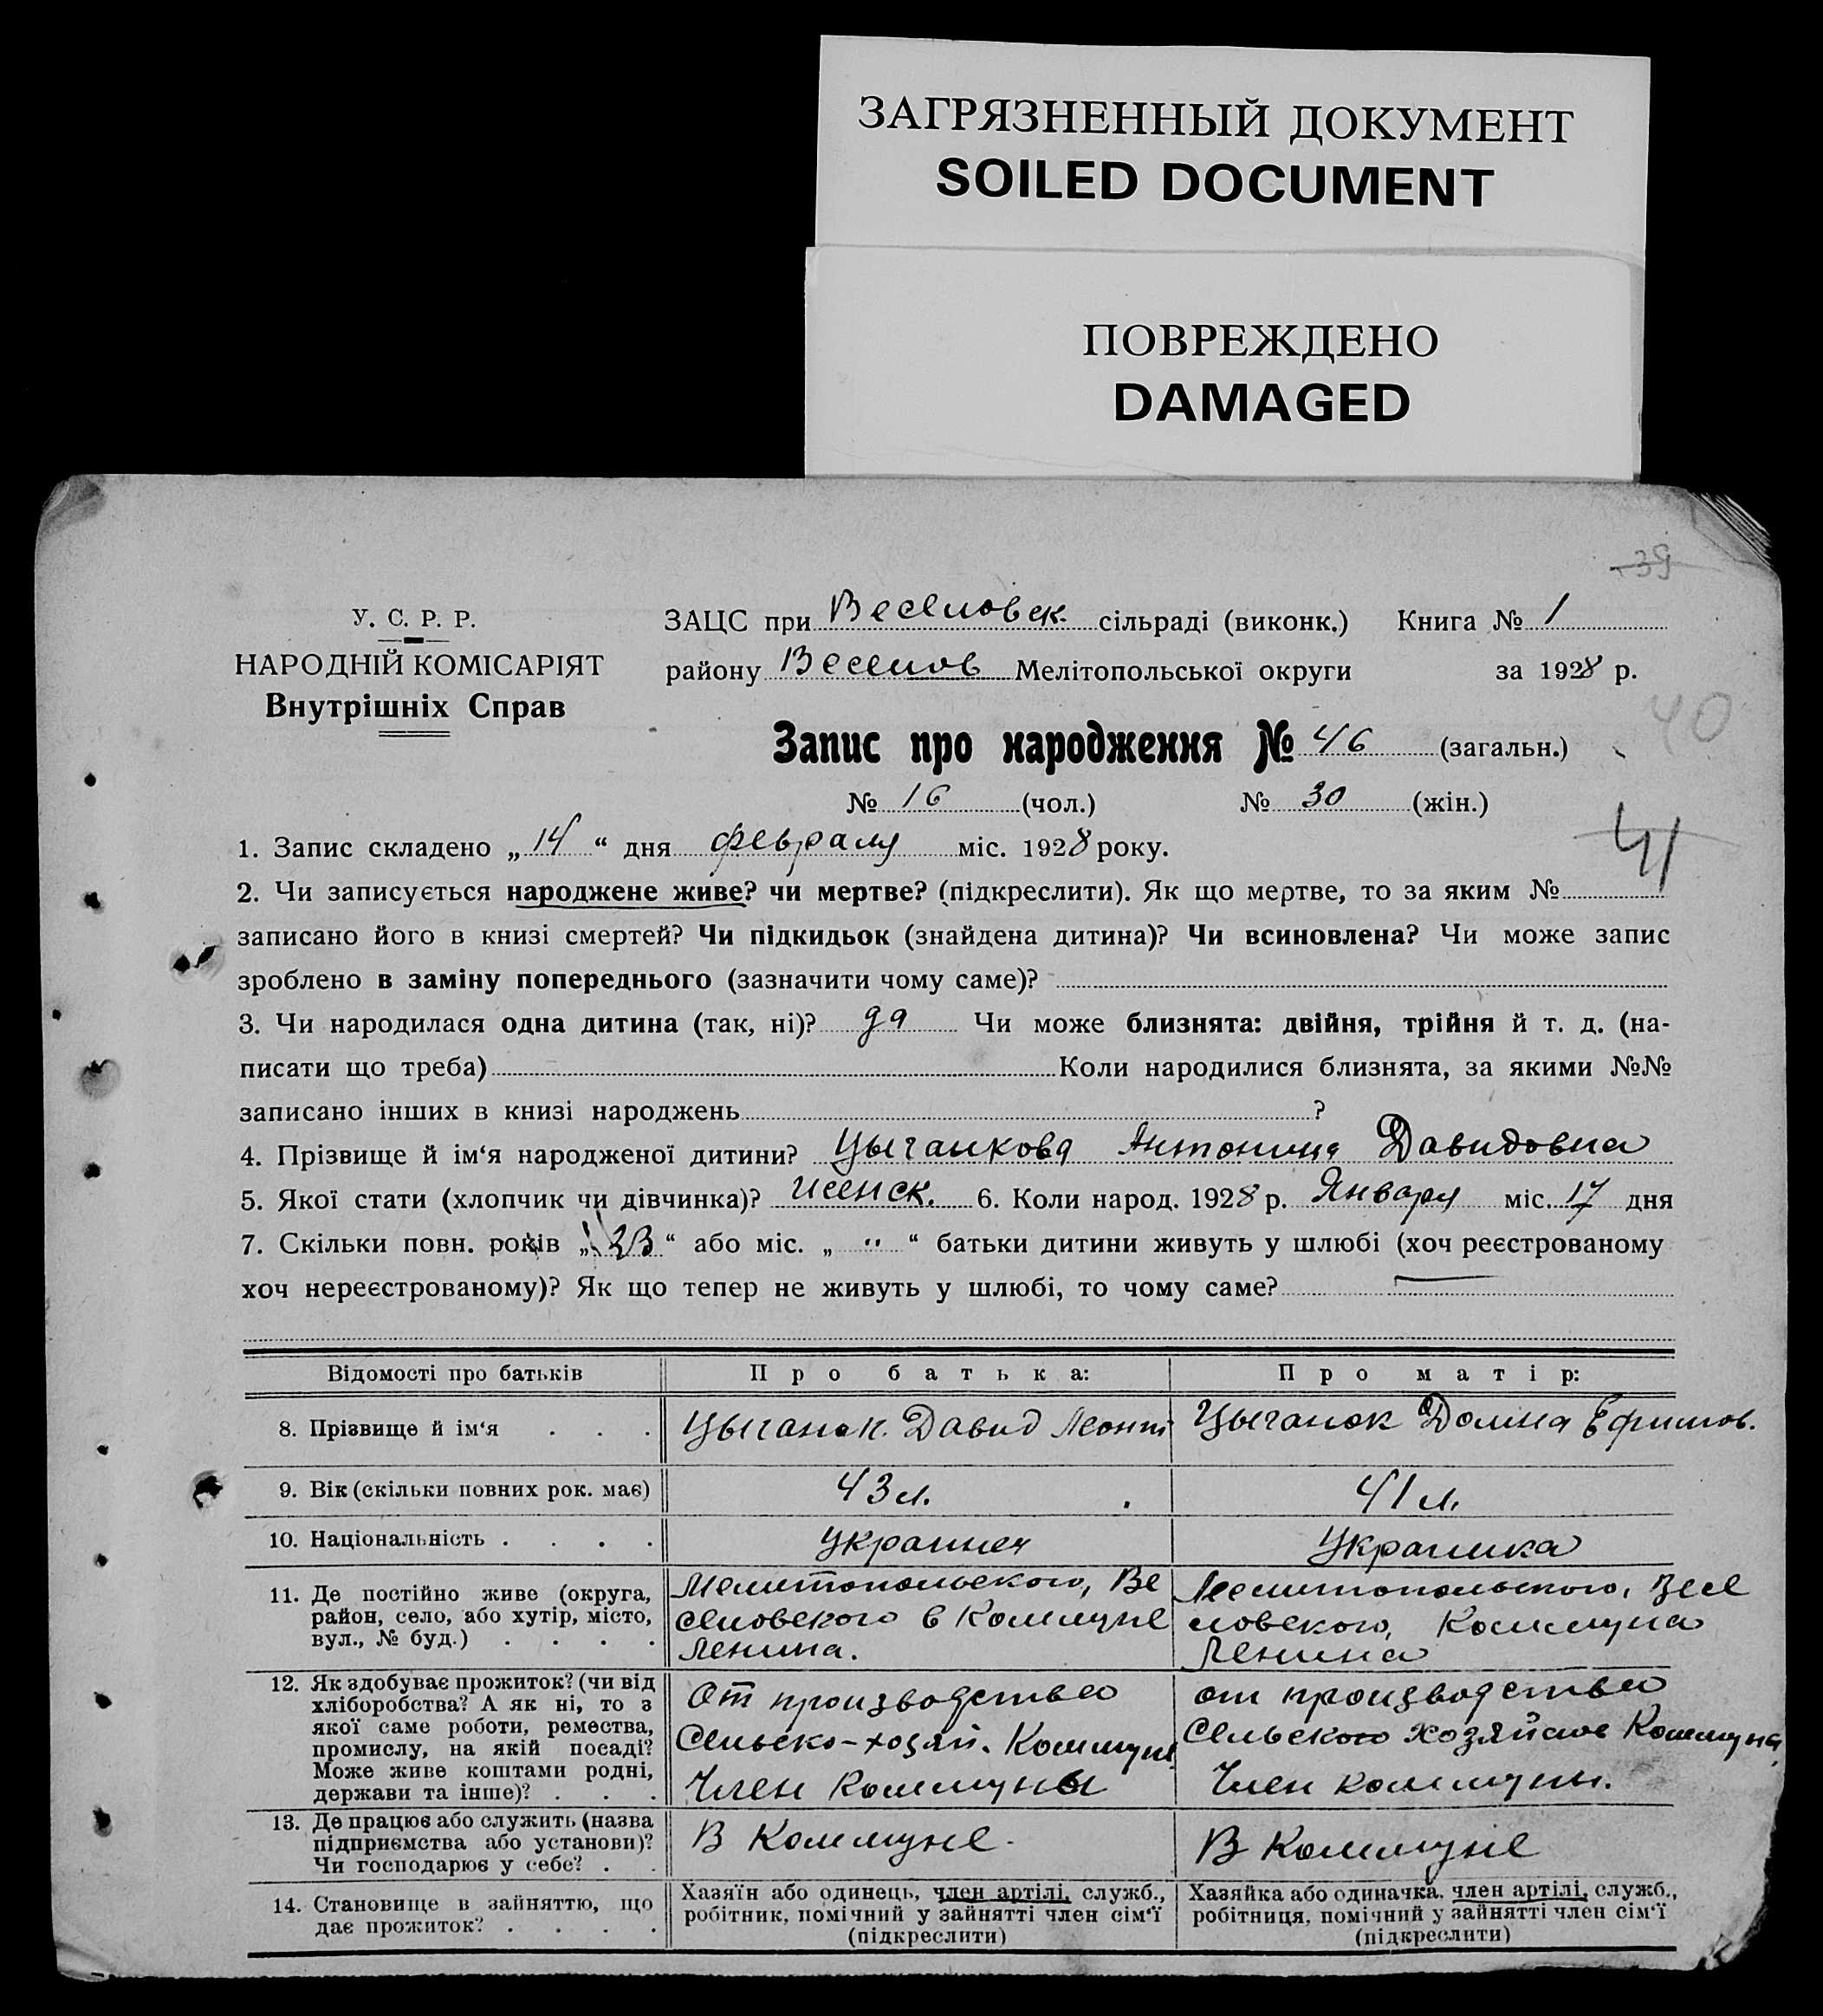 ЗАГРЯЗНЕННЫЙ ДОКУМЕНТ
SOILED DOCUMENT
ПОВРЕЖДЕНО
DAMAGED
39
У. С. Р. Р.
НАРОДНІЙ КОМІСАРІЯТ
Внутрішніх Справ
ЗАЦС при Веселовск. сільраді (виконк.) Книга № 1
району Веселов Мелітопольської округи за 1928 р.
40
Запис про народження № 46 (загальн.)
№ 16 (чол.) № 30 (жін.)
41
1. Запис складено „14“ дня февраля міс. 1928 року.
2. Чи записується народжене живе? чи мертве? (підкреслити). Як що мертве, то за яким №
записано його в книзі смертей? Чи підкидьок (знайдена дитина)? Чи всиновлена? Чи може запис
зроблено в заміну попереднього (зазначити чому саме)?
3. Чи народилася одна дитина (так, ні)? да Чи може близнята: двійня, трійня й т. д. (на-
писати що треба) Коли народилися близнята, за якими №№
записано інших в книзі народжень ?
4. Прізвище й ім‘я народженої дитини? Цыганкова Антонина Давидовна
5. Якої стати (хлопчик чи дівчинка)? женск. 6. Коли народ. 1928 р. Января міс. 17 дня
7. Скільки повн. років „23“ або міс. „ " “ батьки дитини живуть у шлюбі (хоч реєстрованому
хоч нереєстрованому)? Як що тепер не живуть у шлюбі, то чому саме? —
Відомості про батьків Про батька: Про матір:
8. Прізвище й ім‘я . . . Цыганок Давид Леонт Цыганок Домна Ефимов.
9. Вік (скільки повних рок. має) 43 л. 41 л.
10. Національність . . . . Украинец Украинка
11. Де постійно живе (округа,
район, село, або хутір, місто,
вул., № буд.) . . . .
Мелитопольского, Ве
селовского в Коммуне
Ленина.
Мелитопольского, Весе
ловского, Коммуна
Ленина
12. Як здобуває прожиток? (чи від
хліборобства? А як ні, то з
якої саме роботи, ремества,
промислу, на якій посаді?
Може живе коштами родні,
держави та інше)? . . .
От производства
Сельско-хозяй. Коммуны
Член Коммуны
от производства
Сельского хозяйстве Коммуна
Член коммуны.
13. Де працює або служить (назва
підприємства або установи)?
Чи господарює у себе? . .
В Коммуне.
В Коммуне
14. Становище в зайняттю, що
дає прожиток? . . . .
Хазяїн або одинець, член артілі, служб.,
робітник, помічний у зайнятті член сім‘ї
(підкреслити)
Хазяйка або одиначка, член артілі, служб.,
робітниця, помічний у зайнятті член сім‘ї
(підкреслити)